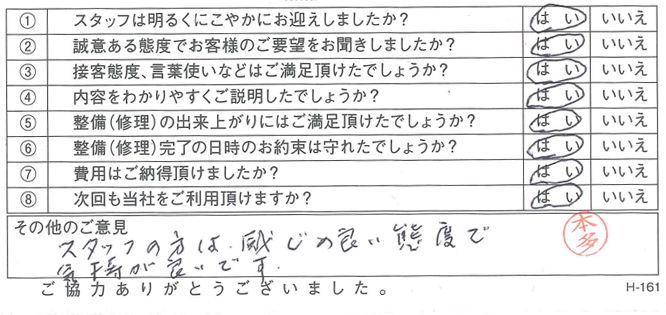 ① スタッフは明るくにこやかにお迎えしましたか? はい いいえ
② 誠意ある態度でお客様のご要望をお聞きしましたか? はい いいえ
③ 接客態度、言葉使いなどはご満足頂けたでしょうか? はい いいえ
④ 内容をわかりやすくご説明したでしょうか? はい いいえ
⑤ 整備(修理)の出来上がりにはご満足頂けたでしょうか? はい いいえ
⑥ 整備(修理)完了の日時のお約束は守れたでしょうか? はい いいえ
⑦ 費用はご納得頂けましたか? はい いいえ
⑧ 次回も当社をご利用頂けますか? はい いいえ
その他のご意見
スタッフの方は、感じの良い態度で
気持が良いです。
本多
ご協力ありがとうございました。
H-161